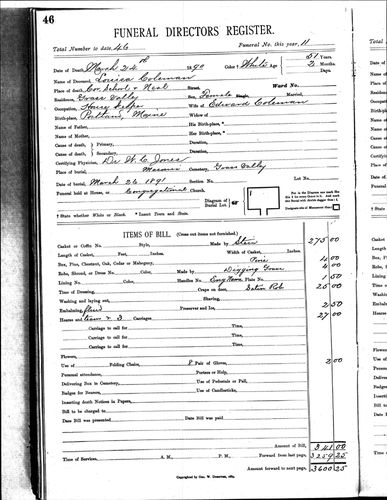 46
FUNERAL DIRECTORS REGISTER.
Total Number to date, 46 Funeral No. this year, 11
Date of Death, March 24th 1890 Color † White Age 51 Years
2 Months
Days
Name of Deceased, Coleman
Place of death, Cor. School & Neal Street. Ward No.
Residence, Grass Valley Sex, Female Single, Married,
Occupation, Wife of Edward Coleman
Birthplace, Portland, Maine Widow of
Name of Father, His Birth-place, *
Name of Mother, Her Birth-place, *
Cause of death, } Primary, Duration,
Cause of death, } Secondary, Duration,
Certifying Physician, Dr W. C. Jones
Place of burial, Masonic Cemetery, Grass Valley
Date of burial, March 26 1891 Section No. Lot No.
Funeral held at Home, or Congregational Church.
Diagram of Burial Lot.
† State whether White or Black. * Insert Town and State.
ITEMS OF BILL. (Cross out items not furnished.)
Casket or Coffin No. Style, Made by Stein 275 00
Length of Casket, Feet, Inches. Width of Casket, Inches.
Box, Pine, Chestnut, Oak, Cedar or Mahogany, Pine 4 00
Robe, Shroud, or Dress No. Color, Made by Digging Grave 4 00
Lining No. Color, Handles No. Plate No. 1 50
Time of Dressing, Crape on door, Satin Rob 25 00
Washing and laying out, Shaving,
Embalming, fluid Preserver and Ice, 2 50
Hearse and team & 3 Carriages 27 00
Carriage to call for Time,
Carriage to call for Time,
Carriage to call for Time,
Flowers,
Use of Folding Chairs, 8 Pair of Gloves, 2 00
Personal attendance, Porters or Help,
Delivering Box to Cemetery, Use of Pedestals or Pall,
Badges for Bearers, Use of Candlesticks,
Inserting death Notices in Papers,
Bill to be charged to
Date Bill was presented Date Bill was paid
Amount of Bill, 341 00
Time of Services, A. M., P. M. Forward from last page, 3259 25
Amount forward to next page, 3600 25